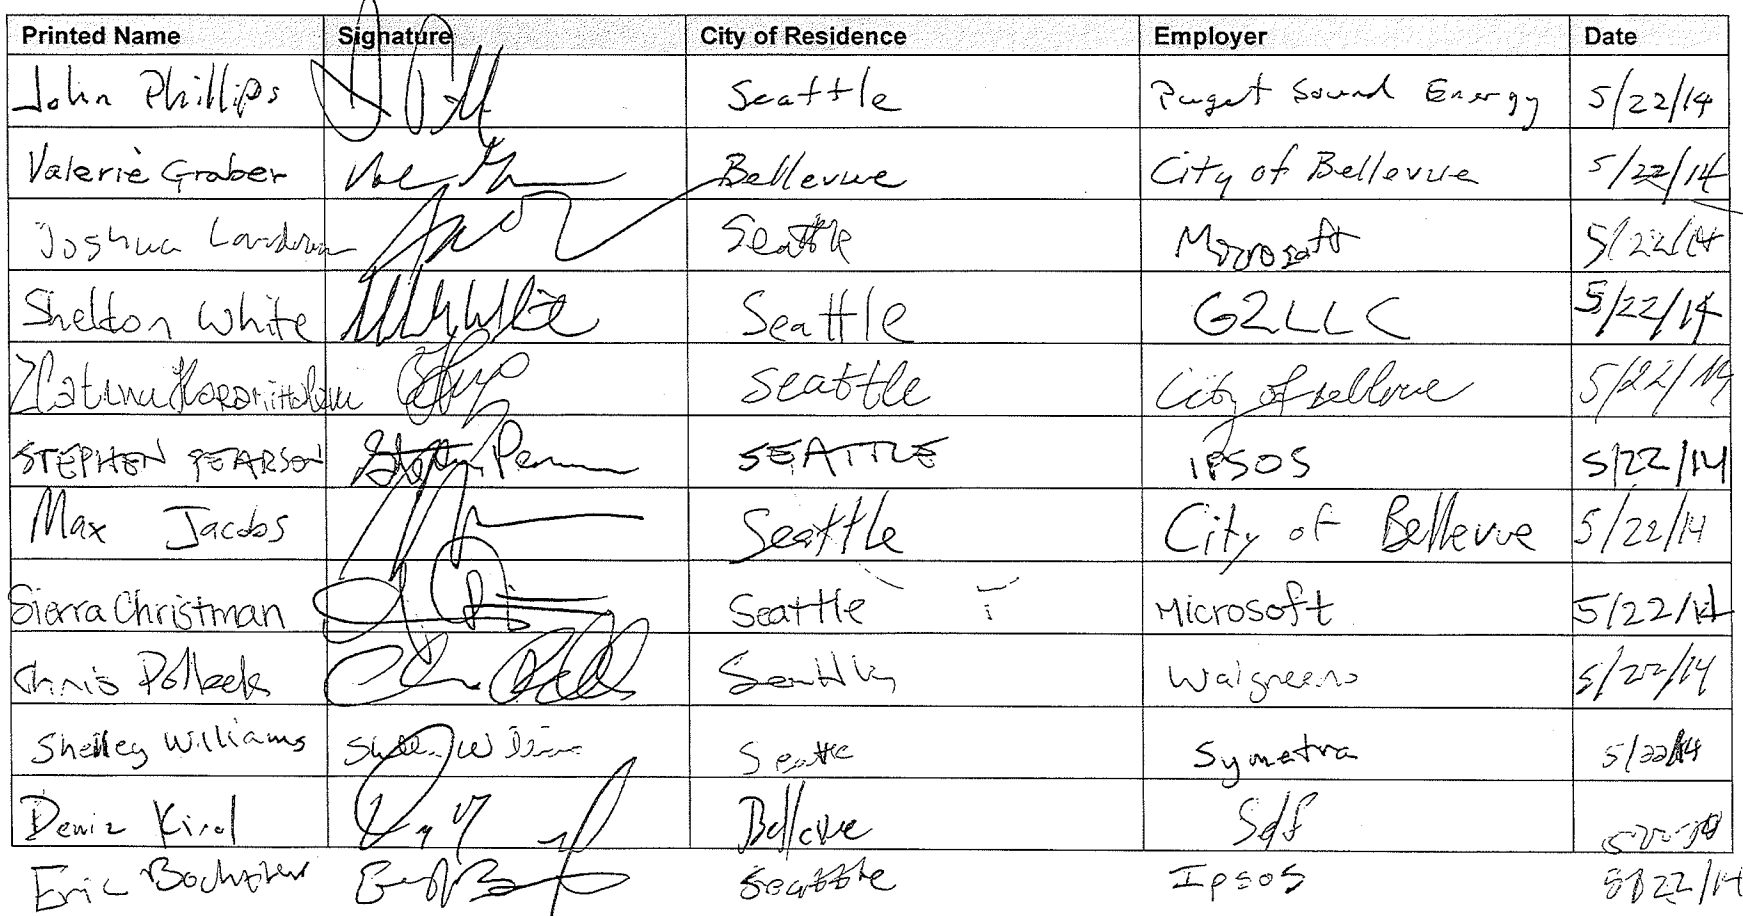 Printed Name Signature City of Residence Employer Date
John Phillips Seattle Puget Sound Energy 5/22/14
Valerie Graber Bellevue City of Bellevue 5/22/14
Joshua Seattle Microsoft 5/22/14
Sheldon White Seattle G2LLC 5/22/14
Seattle City of Bellevue 5/22/14
STEPHEN PEARSON SEATTLE IPSOS 5/22/14
Max Jacobs Seattle City of Bellevue 5/22/14
Sierra Christman Seattle Microsoft 5/22/14
Chris Seattle Walgreens 5/22/14
Shelley Williams Seattle Symetra 5/22/14
Deniz Bellevue Self
Eric Seattle Ipsos 5/22/14